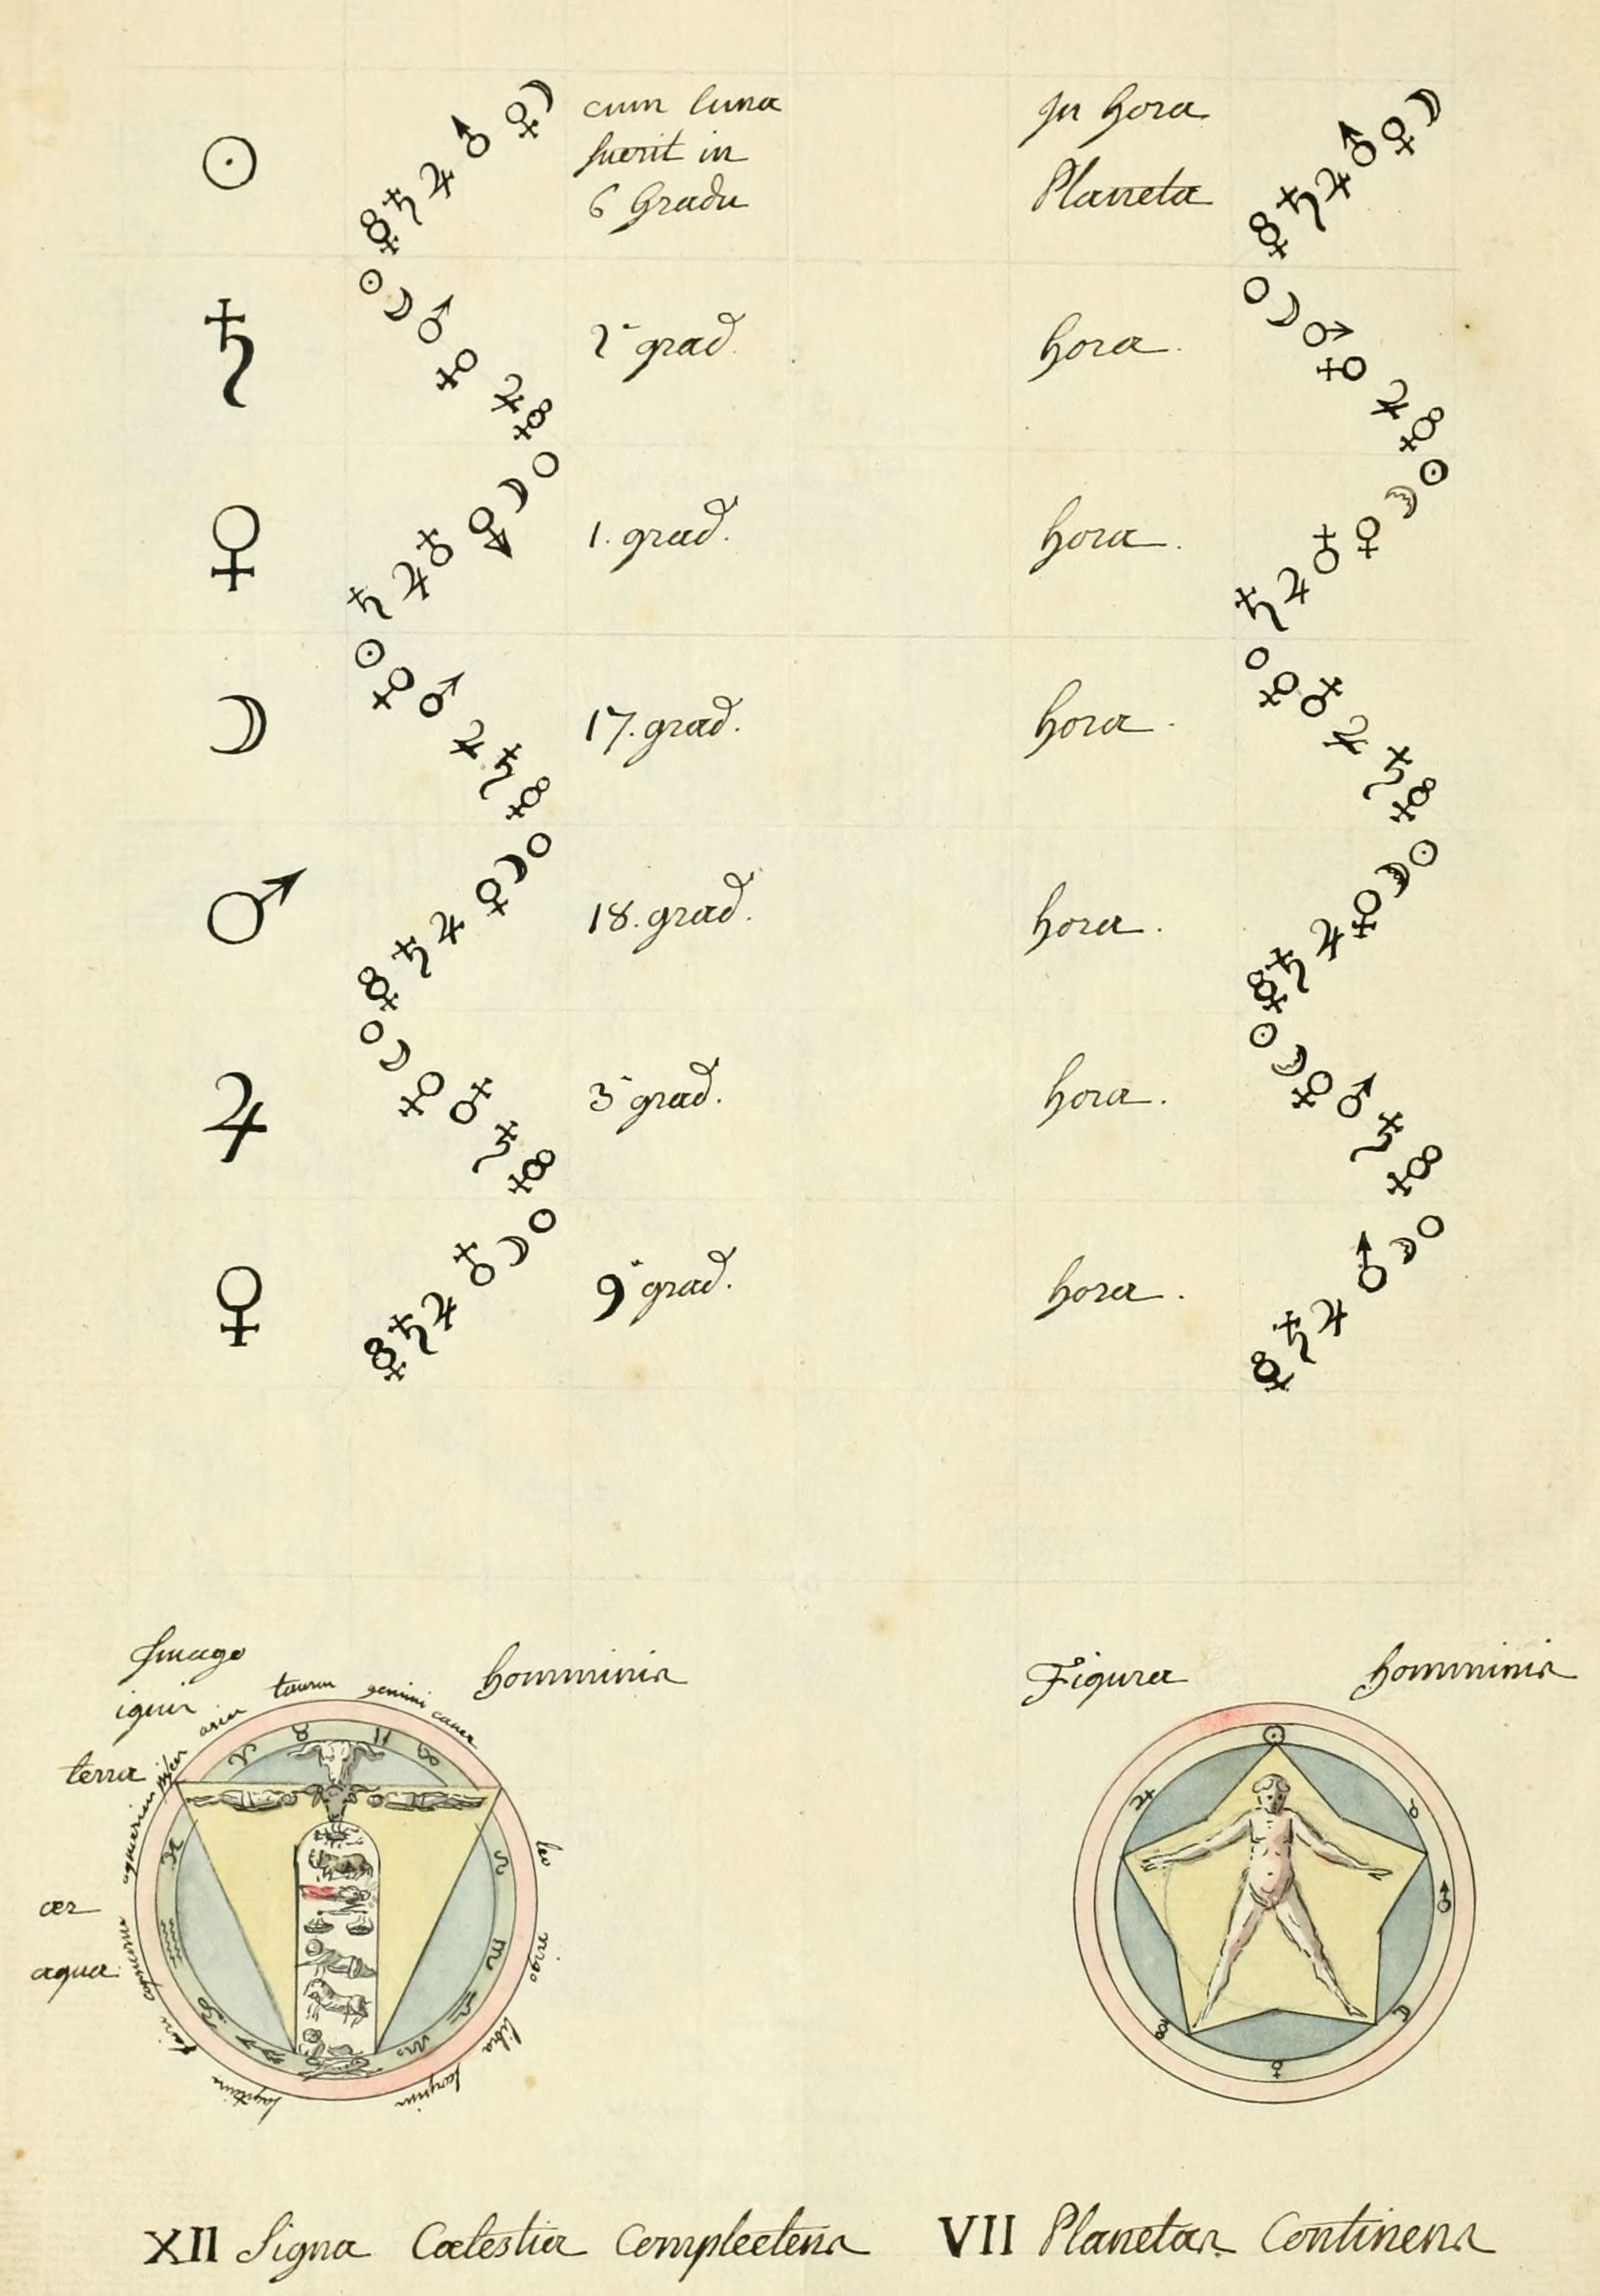 ☉ cum luna In hora
fuerit in Planeta
6 Gradu
♄ 2 grad. hora.
♀ 1. grad. hora.
☽ 17. grad. hora.
♂ 18. grad. hora.
♃ 3 grad. hora.
♀ 9 grad. hora.
Imago homminis Figura homminis
ignis
terra
aer
aqua
aries
taurus
gemini
cancer
leo
virgo
libra
XII Signa Cœlestia Complectens VII Planetas Continens